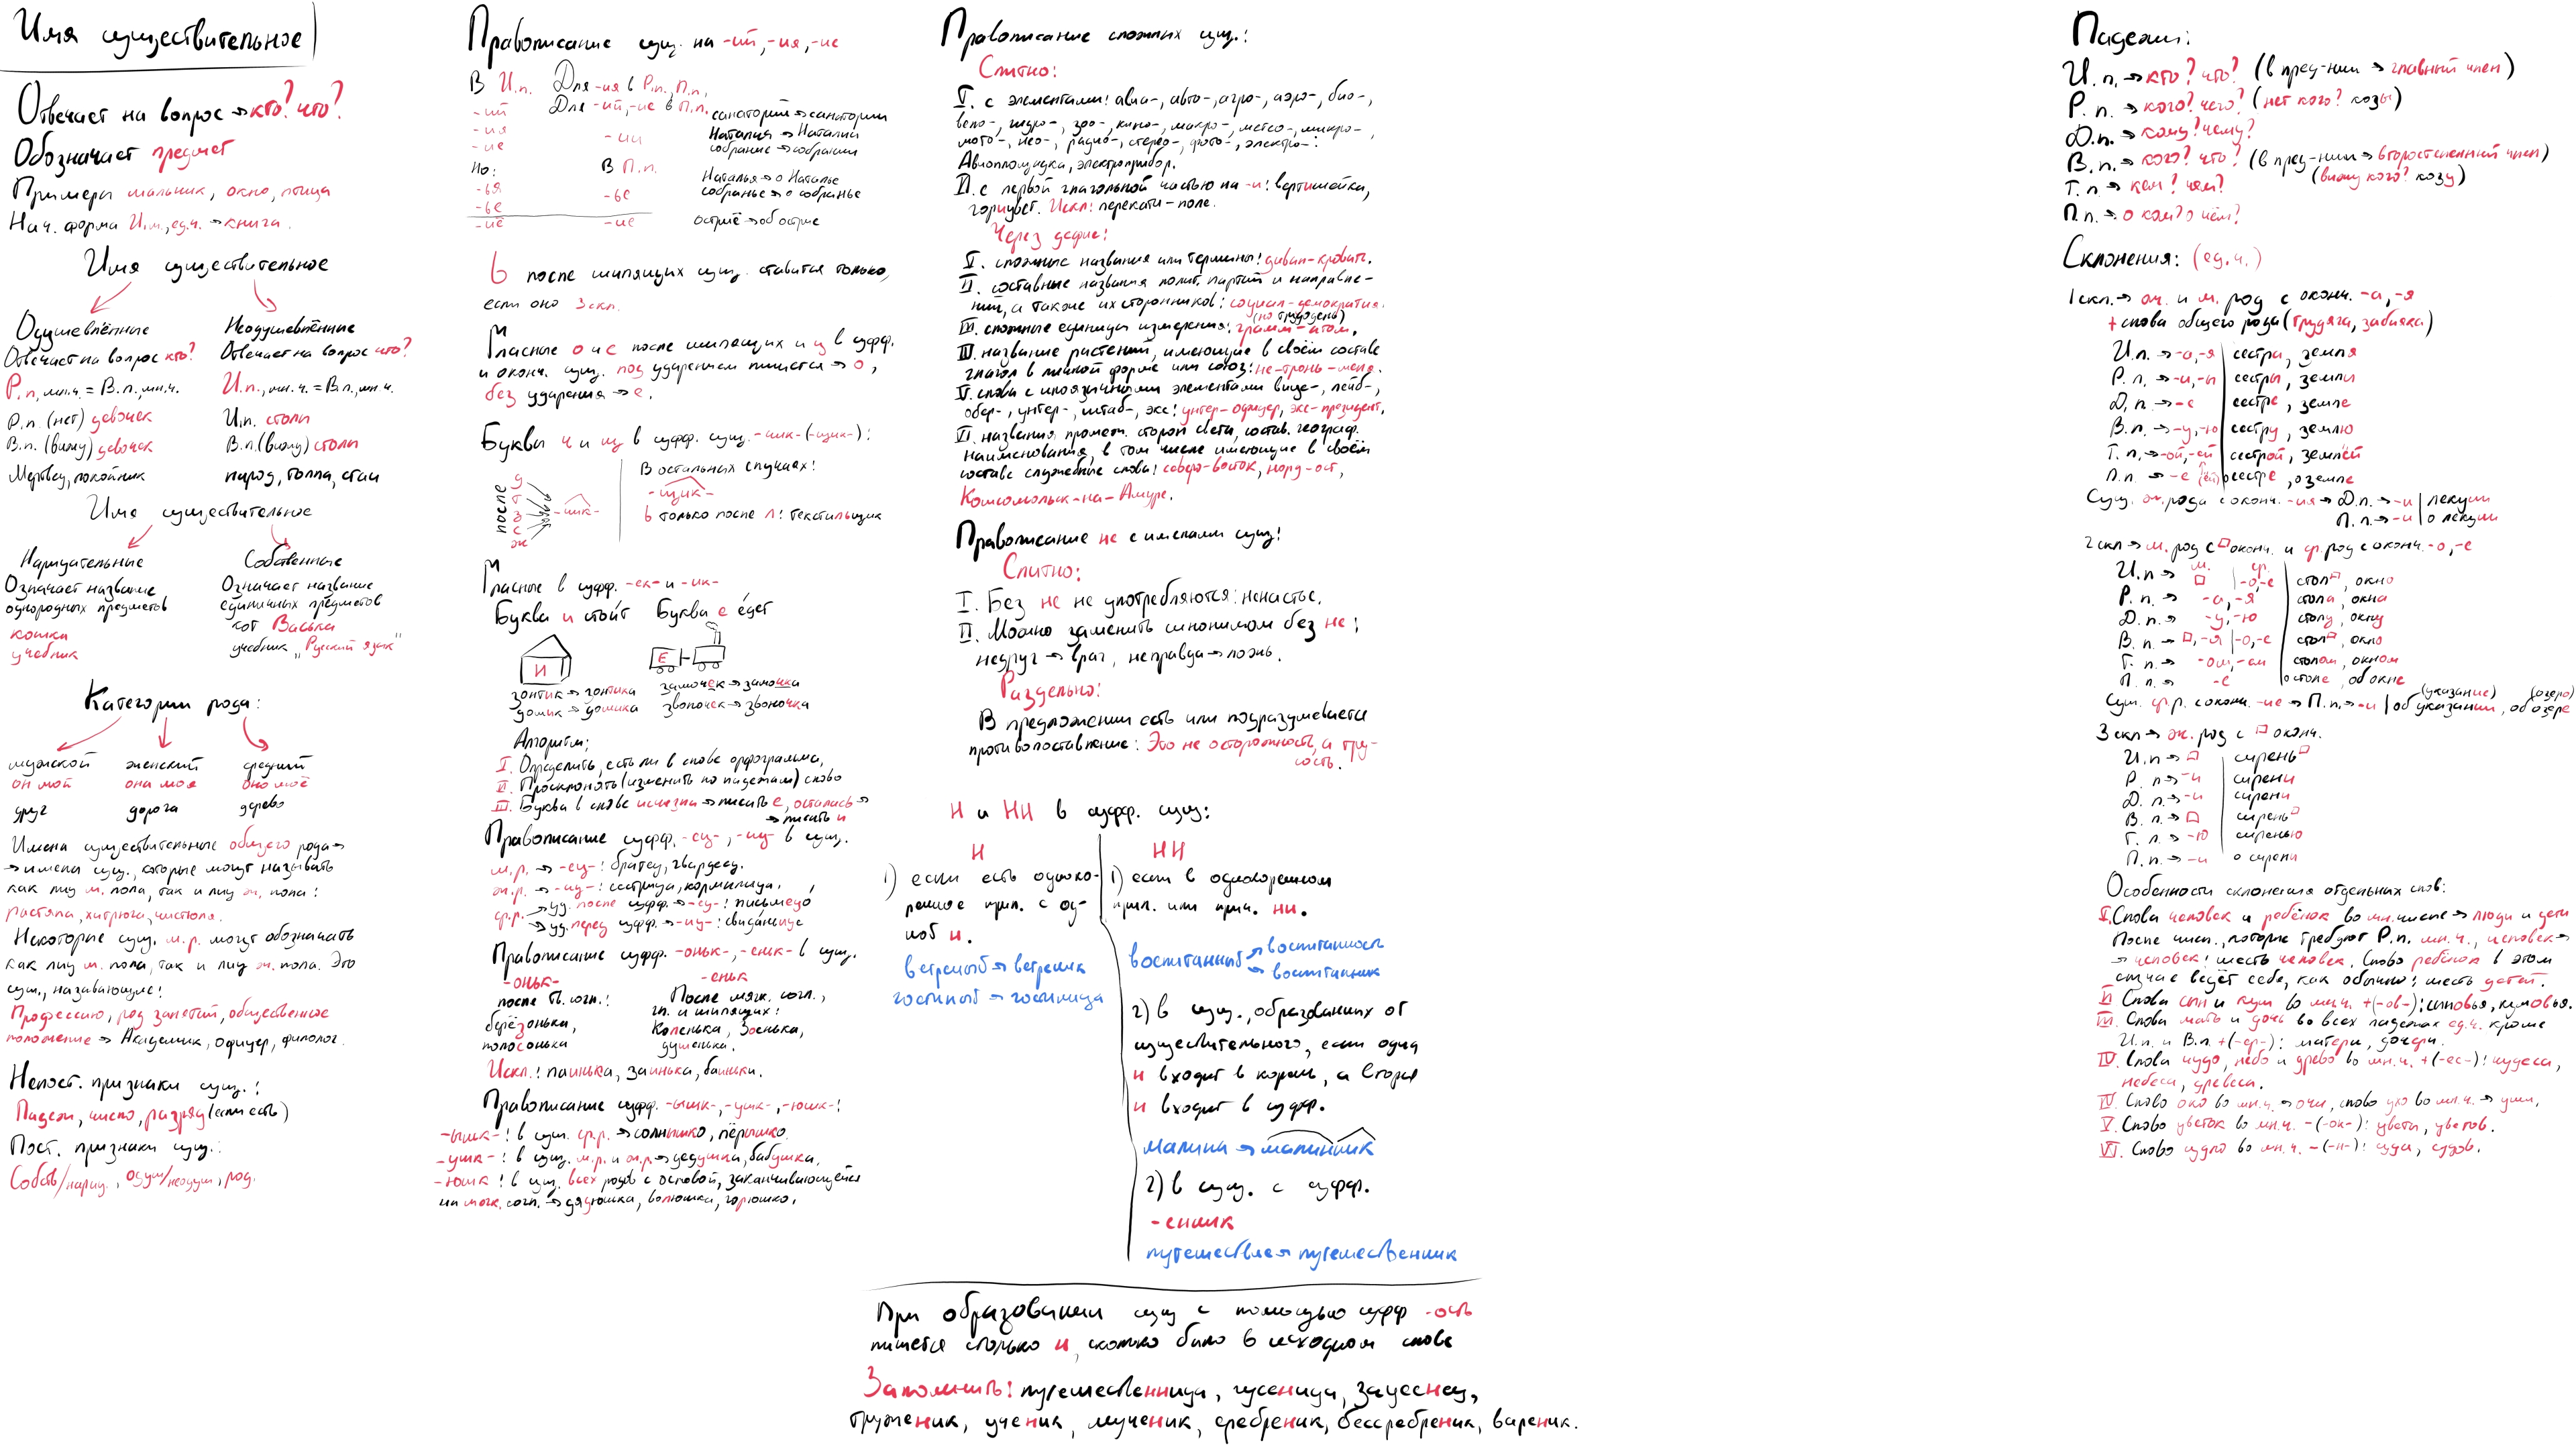 Имя существительное
Отвечает на вопрос → кто? что?
Обозначает предмет
Примеры мальчик, окно, птица
Нач. форма И.п., ед.ч. → книга.
Имя существительное
Одушевлённые
Отвечает на вопрос кто?
Р.п., мн.ч. = В.п., мн.ч.
Р.п. (нет) девочек
В.п. (вижу) девочек
Мертвец, покойник
Неодушевлённые
Отвечает на вопрос что?
И.п., мн.ч. = В.п., мн.ч.
И.п. столы
В.п. (вижу) столы
народ, толпа, стаи
Имя существительное
Нарицательные
Означает название
однородных предметов
кошка
учебник
Собственные
Означает название
единичных предметов
кот Васька
учебник „Русский язык“
Категории рода:
мужской женский средний
он мой она моя оно моё
друг дорога дерево
Имена существительные общего рода →
→ имена сущ., которые могут называть
как лиц м. пола, так и лиц ж. пола:
растяпа, хитрюга, чистюля.
Некоторые сущ. м.р. могут обозначать
как лиц м. пола, так и лиц ж. пола. Это
сущ., называющие:
Профессию, род занятий, общественное
положение → Академик, офицер, филолог.
Непост. признаки сущ.:
Падеж, число, разряд (если есть)
Пост. признаки сущ.:
Собств/нариц., одуш/неодуш, род.
Правописание сущ. на -ий, -ия, -ие
В И.п. Для -ия в Р.п., П.п.,
Для -ий, -ие в П.п.
-ий
-ия
-ие
-ии
санаторий → санатории
Наталия → Наталии
собрание → собрании
Но: В П.п.
-ья
-ье
-ье
Наталья → о Наталье
собранье → о собранье
-иё -ие остриё → об острие
Ь после шипящих сущ. ставится только,
если оно 3 скл.
Гласные о и е после шипящих и ц в суфф.
и оконч. сущ. под ударением пишется → о,
без ударения → е.
Буквы ч и щ в суфф. сущ. -чик- (-щик-):
после
д
т
з
с
ж
-чик-
В остальных случаях:
-щик-
ь только после л: текстильщик
Гласные в суфф. -ек- и -ик-
Буква и стои́т Буква е е́дет
И
Е
зонтик → зонтика замочек → замочка
домик → домика звоночек → звоночка
Алгоритм:
I. Определить, есть ли в слове орфограмма,
II. Просклонять (изменить по падежам) слово
III. Буква в слове исчезла → писать е, осталась →
→ писать и
Правописание суфф. -ец-, -иц- в сущ.
м.р. → -ец-: братец, гвардеец.
ж.р. → -иц-: сестрица, кормилица.
ср.р. → уд. после суфф. → -ец-: письмецо́
→ уд. перед суфф. → -иц-: свида́ньице
Правописание суфф. -оньк-, -еньк- в сущ.
-оньк-
после тв. согл.:
берёзонька,
полосонька
-еньк
После мягк. согл.,
гл. и шипящих:
Коленька, Зоенька,
душенька.
Искл.: паинька, заинька, баиньки.
Правописание суфф. -ышк-, -ушк-, -юшк-:
-ышк-: в сущ. ср.р. → солнышко, пёрышко.
-ушк-: в сущ. м.р. и ж.р → дедушка, бабушка.
-юшк: в сущ. всех родов с основой, заканчивающейся
на мягк. согл. → дядюшка, волюшка, горюшко.
Правописание сложных сущ.:
Слитно:
I. с элементами: авиа-, авто-, агро-, аэро-, био-,
вело-, гидро-, зоо-, кино-, макро-, метео-, микро-,
мото-, нео-, радио-, стерео-, фото-, электро-:
Авиоплощадка, электроприбор.
II. с первой глагольной частью на -и: вертишейка,
горицвет. Искл: перекати-поле.
Через дефис:
I. сложные названия или термины: диван-кровать.
II. составные названия полит. партий и направле-
ний, а также их сторонников: социал-демократия.
(но трудодень)
III. сложные единицы измерения: грамм-атом,
IV. название растений, имеющие в своём составе
глагол в личной форме или союз: не-тронь-меня.
V. слова с иноязычными элементами вице-, лейб-,
обер-, унтер-, штаб-, экс: унтер-офицер, экс-президент.
VI. названия промеж. сторон света, состав. географ.
наименования, в том числе имеющие в своём
составе служебные слова: северо-восток, норд-ост,
Комсомольск-на-Амуре.
Правописание не с именами сущ:
Слитно:
I. Без не не употребляются: ненастье.
II. Можно заменить синонимом без не:
недруг → враг, неправда → ложь.
Раздельно:
В предложении есть или подразумевается
противопоставление: Это не осторожность, а тру-
сость.
Н и НН в суфф. сущ:
Н
1) если есть одноко-
ренное прил. с од-
ной н.
ветреный → ветреник
гостиный → гостиница
НН
1) если в однокоренном
прил. или прич. нн.
воспитанный → воспитанность
→ воспитанник
2) в сущ., образованных от
существительного, если одна
н входит в корень, а вторая
н входит в суфф.
малина → малинник
2) в сущ. с суфф.
-енник
путешествие → путешественник
При образовании сущ с помощью суфф -ость
пишется столько н, сколько было в исходном слове
Запомнить: путешественница, гусеница, заусенец,
труженик, ученик, мученик, сребреник, бессребреник, вареник.
Падежи:
И.п. → кто? что? (в пред-нии → главный член)
Р.п. → кого? чего? (нет кого? козы)
Д.п. → кому? чему?
В.п. → кого? что? (в пред-нии → второстепенный член)
(вижу кого? козу)
Т.п → кем? чем?
П.п. → о ком? о чём?
Склонения: (ед.ч.)
1 скл. → ж. и м. род с оконч. -а, -я
+ слова общего рода (трудяга, забияка)
И.п. → -а, -я сестра, земля
Р.п. → -ы, -и сестры, земли
Д.п. → -е сестре, земле
В.п. → -у, -ю сестру, землю
Т.п. → -ой, -ей сестрой, землёй
П.п. → -е о сестре, о земле
Сущ. ж. рода с оконч. -ия → Д.п. → -и лекции
П.п. → -и о лекции
2 скл → м. род с оконч. и ср. род с оконч. -о, -е
м. ср.
И.п → -о, -е стол, окно
Р.п. → -а, -я стола, окна
Д.п. → -у, -ю столу, окну
В.п. → , -я -о, -е стол, окно
Т.п. → -ом, -ем столом, окном
П.п. → -е о столе, об окне
(указание) (озеро)
Сущ. ср.р. с оконч. -ие → П.п. → -и об указании, об озере
3 скл → ж. род с оконч.
И.п → сирень
Р.п → -и сирени
Д.п. → -и сирени
В.п. → сирень
Т.п. → -ю сиренью
П.п. → -и о сирени
Особенности склонения отдельных слов:
I. Слова человек и ребёнок во мн. числе → люди и дети
После числ., которые требуют Р.п. мн.ч., человек →
→ человек: шесть человек. Слово ребёнок в этом
случае ведёт себя, как обычно: шесть детей.
II Слова сын и кум во мн.ч. +(-ов-): сыновья, кумовья.
III. Слова мать и дочь во всех падежах ед.ч. кроме
И.п. и В.п. +(-ер-): матери, дочери.
IV. Слова чудо, небо и древо во мн.ч. +(-ес-): чудеса,
небеса, древеса.
IV. Слово око во мн.ч. → очи, слово ухо во мн.ч. → уши.
V. Слово цветок во мн.ч. -(-ок-): цветы, цветов.
VI. Слово судно во мн.ч. -(-н-): суда, судов.